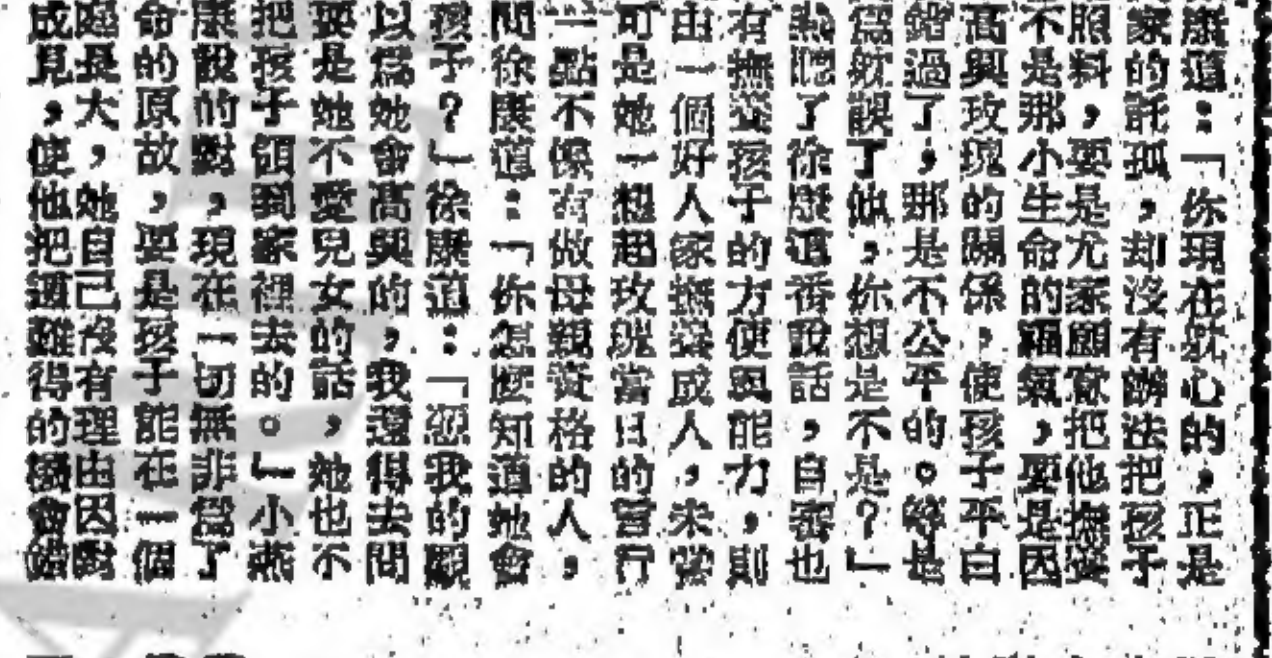 康道：「你現在就心的，正是
家的託孤，却沒有辦法把孩子
照料，要是尤家願意把他撫養
不是那小生命的福氣，要是因
高興玫瑰的關係，使孩子平白
錯過了，那是不公平的。等是
爲就誤了他，你想是不是？」
燕聽了徐康這番說話，自審也
有撫養孩子的方便與能力，則
由一個好人家撫養成人，未嘗
可是她一想起玫瑰當日的言行
一點不像有做母親資格的人，
問徐康道：「你怎麽知道她會
孩子？」徐康道：「照我的觀
以爲她會高興的，我還得去問
要是她不愛兒女的話，她也不
把孩子領到家裡去的。」小燕
康說的對，現在一切無非爲了
命的原故，要是孩子能在一個
庭長大，她自己沒有理由因對
成見，使他把這難得的機會錯